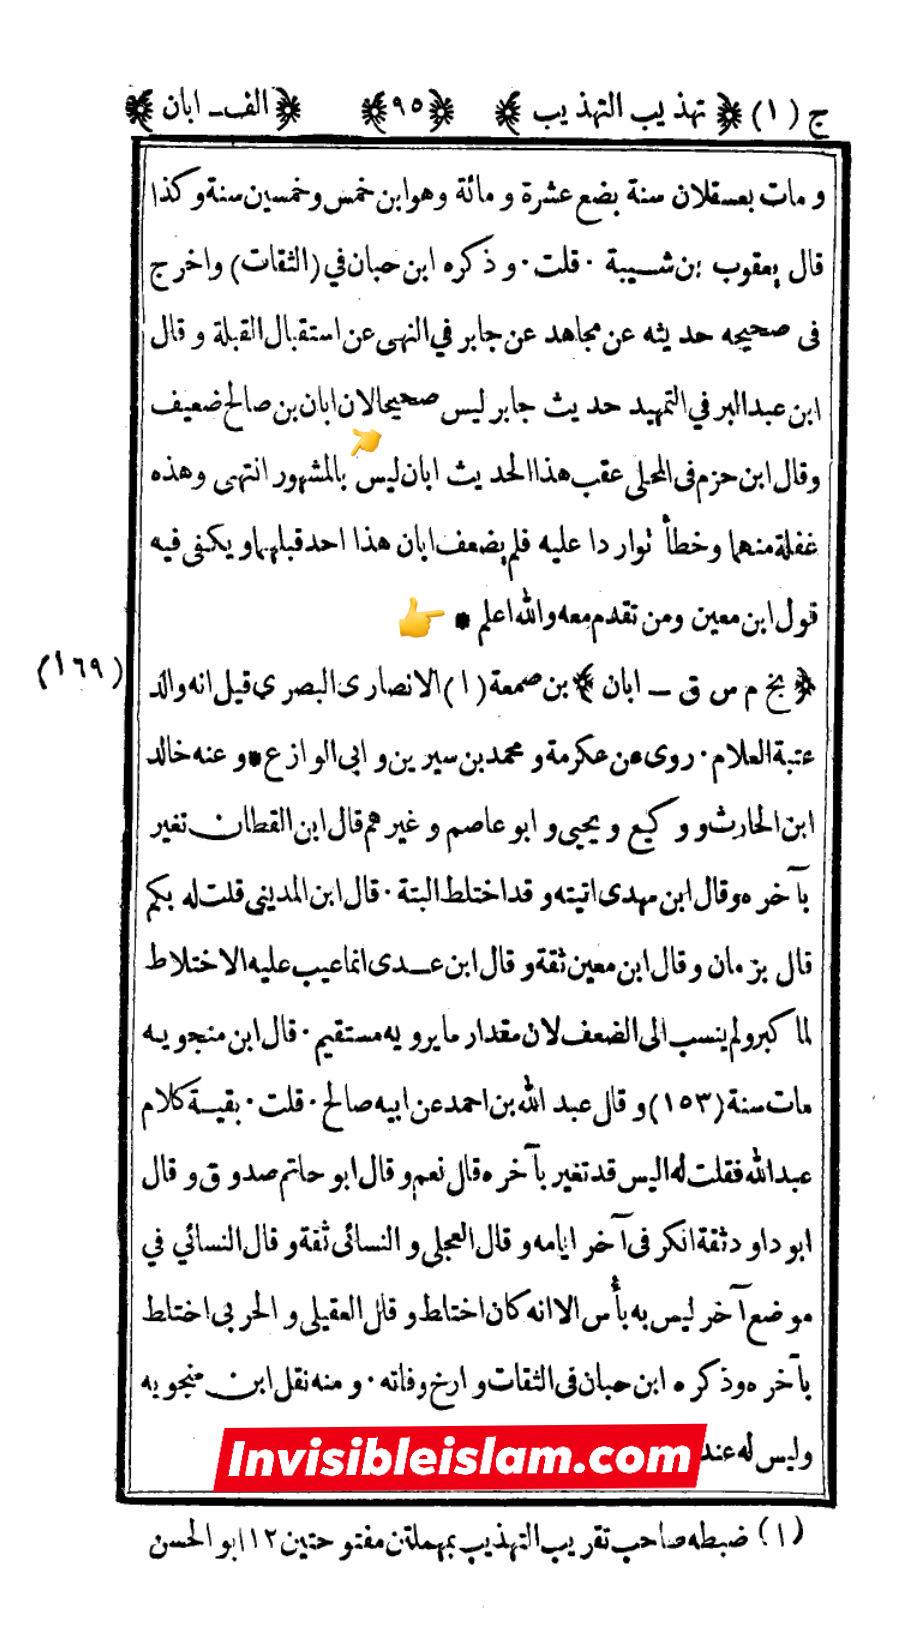 ج (١) ﴿ تهذيب التهذيب ﴾ ﴿٩٥﴾ ﴿ الف ـ ابان ﴾
و مات بعسقلان سنة بضع عشرة و مائة وهو ابن خمس وخمسين سنة وكذا
قال يعقوب بن شيبة ٠ قلت ٠ و ذكره ابن حبان في (الثقات) واخرج
فى صحيحه حديثه عن مجاهد عن جابر في النهى عن استقبال القبلة و قال
ابن عبد البر في التمهيد حديث جابر ليس صحيحا لان ابان بن صالح ضعيف
وقال ابن حزم فى المحلى عقب هذا الحديث ابان ليس بالمشهور انتهى وهذه
غفلة منهما وخطأ توارد ا عليه فلم يضعف ابان هذا احد قبلهما و يكفى فيه
قول ابن معين ومن تقدم معه والله اعلم *
﴿ بخ م س ق ـ ابان ﴾ بن صمعة (١) الانصارى البصري قيل انه والد
(١٦٩)
عتبة الغلام ٠ روى عن عكرمة و محمد بن سيرين و ابى الوازع * و عنه خالد
ابن الحارث و وكيع و يحيى و ابو عاصم و غيرهم قال ابن القطان تغير
بآخره وقال ابن مهدى اتيته و قد اختلط البتة ٠ قال ابن المدينى قلت له بكم
قال بزمان و قال ابن معين ثقة و قال ابن عـدى انما عيب عليه الاختلاط
لما كبر ولم ينسب الى الضعف لان مقدار ما يرويه مستقيم ٠ قال ابن منجويه
مات سنة (١٥٣) و قال عبد الله بن احمد عن ابيه صالح ٠ قلت ٠ بقية كلام
عبد الله فقلت له اليس قد تغير بآخره قال نعم و قال ابو حاتم صدوق و قال
ابو داود ثقة انكر فى آخر ايامه و قال العجلى و النسائى ثقة و قال النسائي في
موضع آخر ليس به بأس الا انه كان اختلط و قال العقيلى و الحربى اختلط
بآخره وذكره ابن حبان فى الثقات و ارخ وفاته ٠ و منه نقل ابن منجويه
وليس له عند
Invisibleislam.com
(١) ضبطه صاحب تقريب التهذيب بمهملتين مفتوحتين ١٢ ابو الحسن